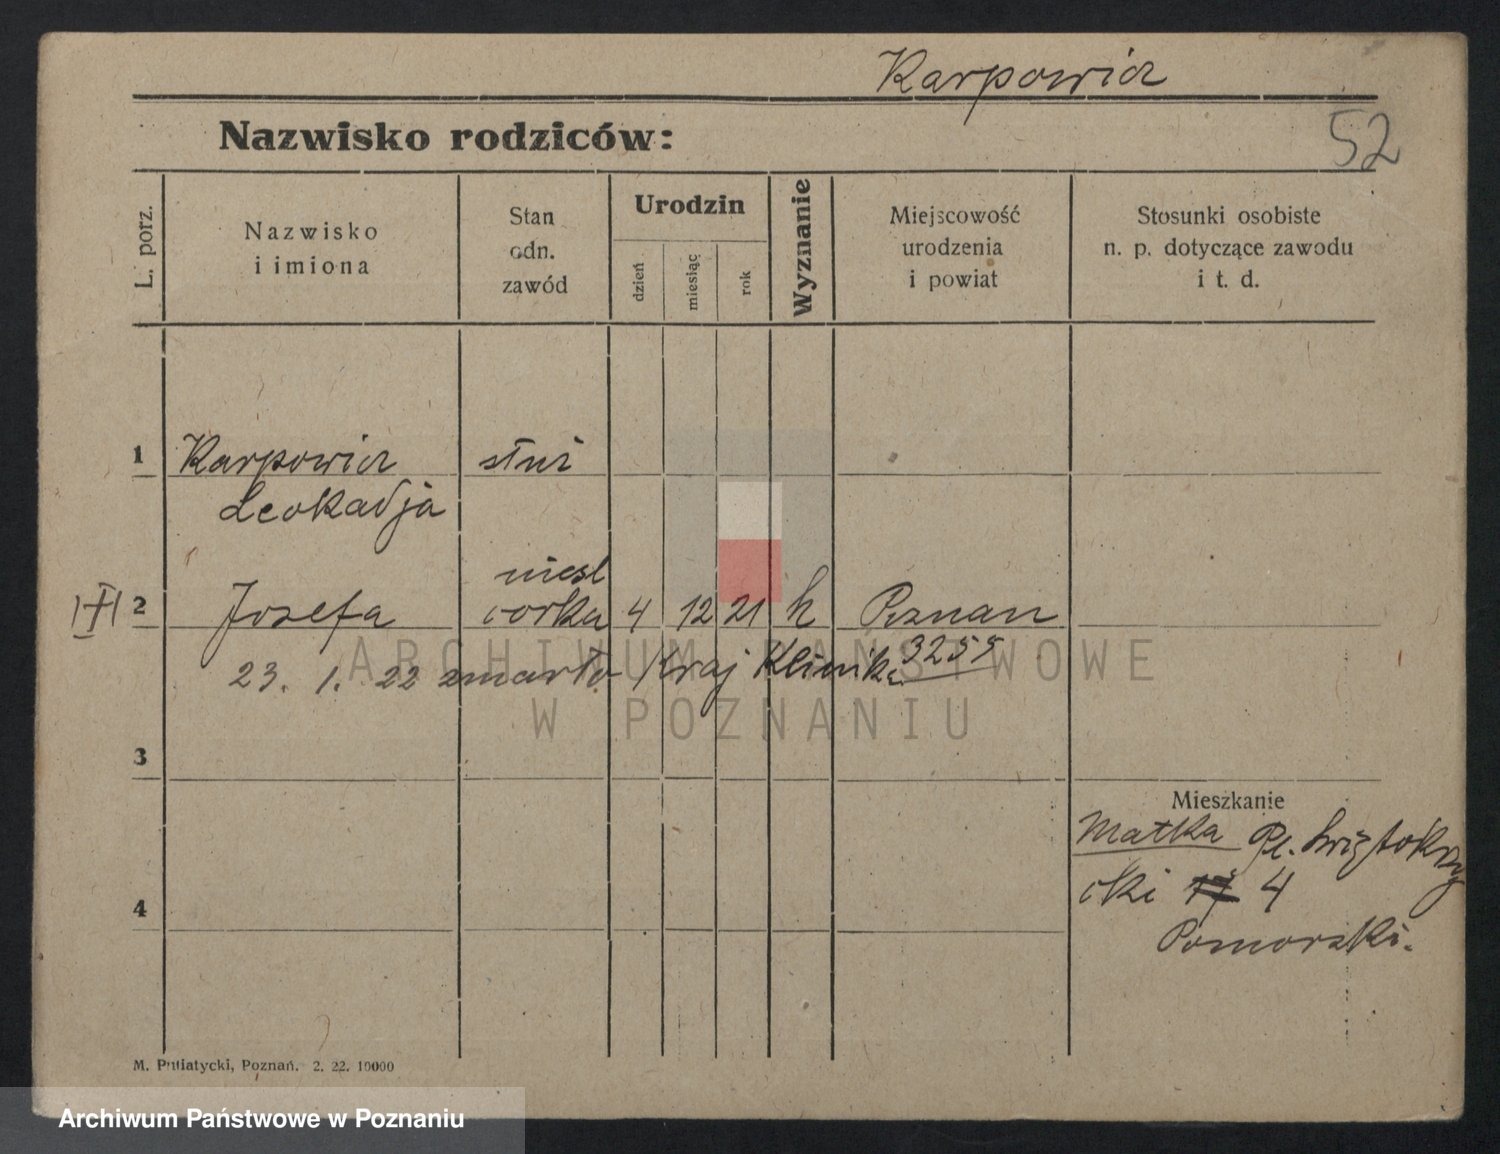 Karpowicz
52
Nazwisko rodziców:
L. porz.
Nazwisko
i imiona
Stan
odn.
zawód
Urodzin
dzień
miesiąc
rok
Wyznanie
Miejscowość
urodzenia
i powiat
Stosunki osobiste
n. p. dotyczące zawodu
i t. d.
1 Karpowicz służ
Leokadja
niesl
2 Josefa córka 4 12 21 k Poznan
23. 1. 22 zmarła Kraj Klinika 3255
3
Mieszkanie
Matka Pl. Świętokrzy
ski 17 4
4
Pomorski.
M. Putiatycki, Poznań. 2. 22. 10000
ARCHIWUM PAŃSTWOWE
W POZNANIU
Archiwum Państwowe w Poznaniu